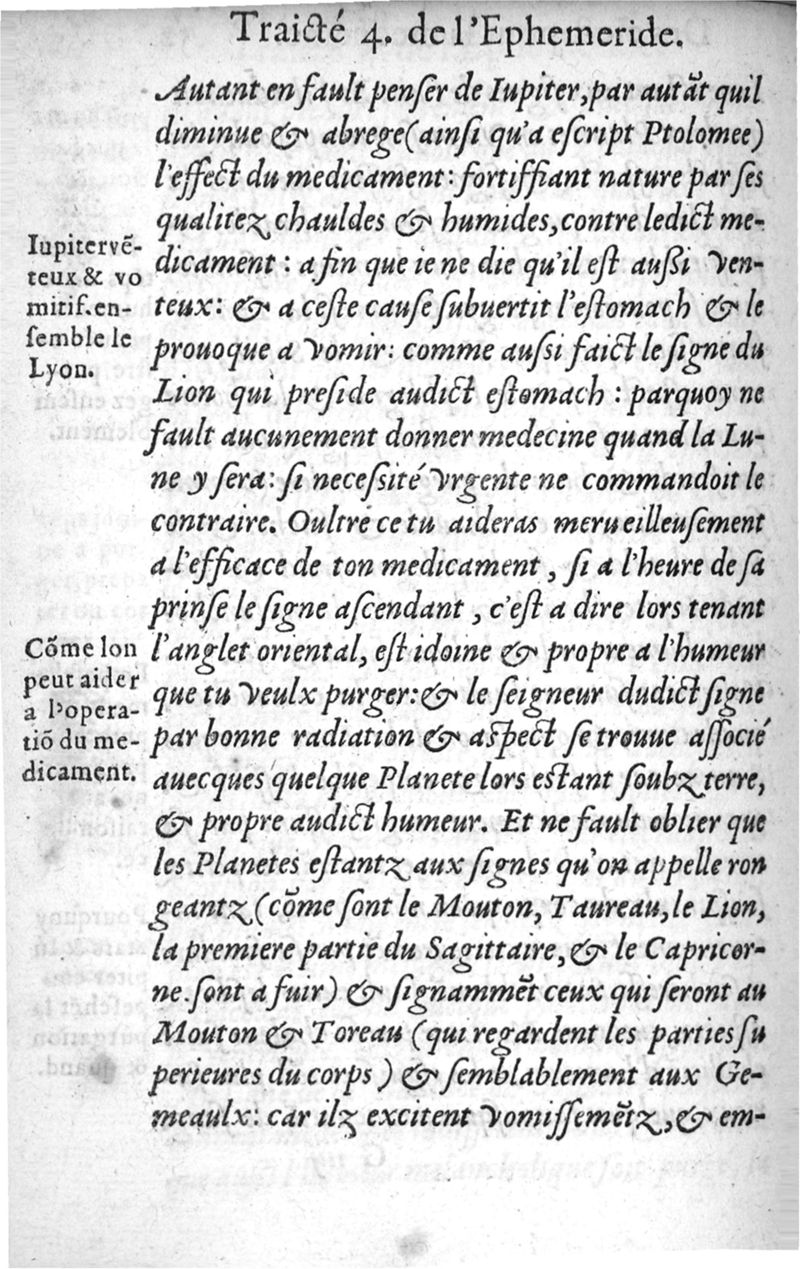 Traicté 4. de l'Ephemeride.
Autant en fault penſer de Iupiter, par autãt quil
diminue & abrege (ainſi qu'a eſcript Ptolomee)
l'effect du medicament: fortiffiant nature par ſes
qualitez chauldes & humides, contre ledict me-
dicament: afin que ie ne die qu'il eſt auſſi ven-
teux: & a ceſte cauſe ſubuertit l'eſtomach & le
prouoque a vomir: comme auſſi faict le ſigne du
Lion qui preſide audict eſtomach: parquoy ne
fault aucunement donner medecine quand la Lu-
ne y ſera: ſi neceſſité vrgente ne commandoit le
contraire. Oultre ce tu aideras merueilleuſement
a l'efficace de ton medicament, ſi a l'heure de ſa
prinſe le ſigne aſcendant, c'eſt a dire lors tenant
l'anglet oriental, eſt idoine & propre a l'humeur
que tu veulx purger: & le ſeigneur dudict ſigne
par bonne radiation & aſpect ſe trouue aſſocié
auecques quelque Planete lors eſtant ſoubz terre,
& propre audict humeur. Et ne fault oblier que
les Planetes eſtantz aux ſignes qu'on appelle ron
geantz (cõme ſont le Mouton, Taureau, le Lion,
la premiere partie du Sagittaire, & le Capricor-
ne. ſont a fuir) & ſignammẽt ceux qui ſeront au
Mouton & Toreau (qui regardent les parties ſu
perieures du corps) & ſemblablement aux Ge-
meaulx: car ilz excitent vomiſſemẽtz, & em-
Iupiter vẽ-
teux & vo
mitif. en-
ſemble le
Lyon.
Cõme lon
peut aider
a l'opera-
tiõ du me-
dicament.